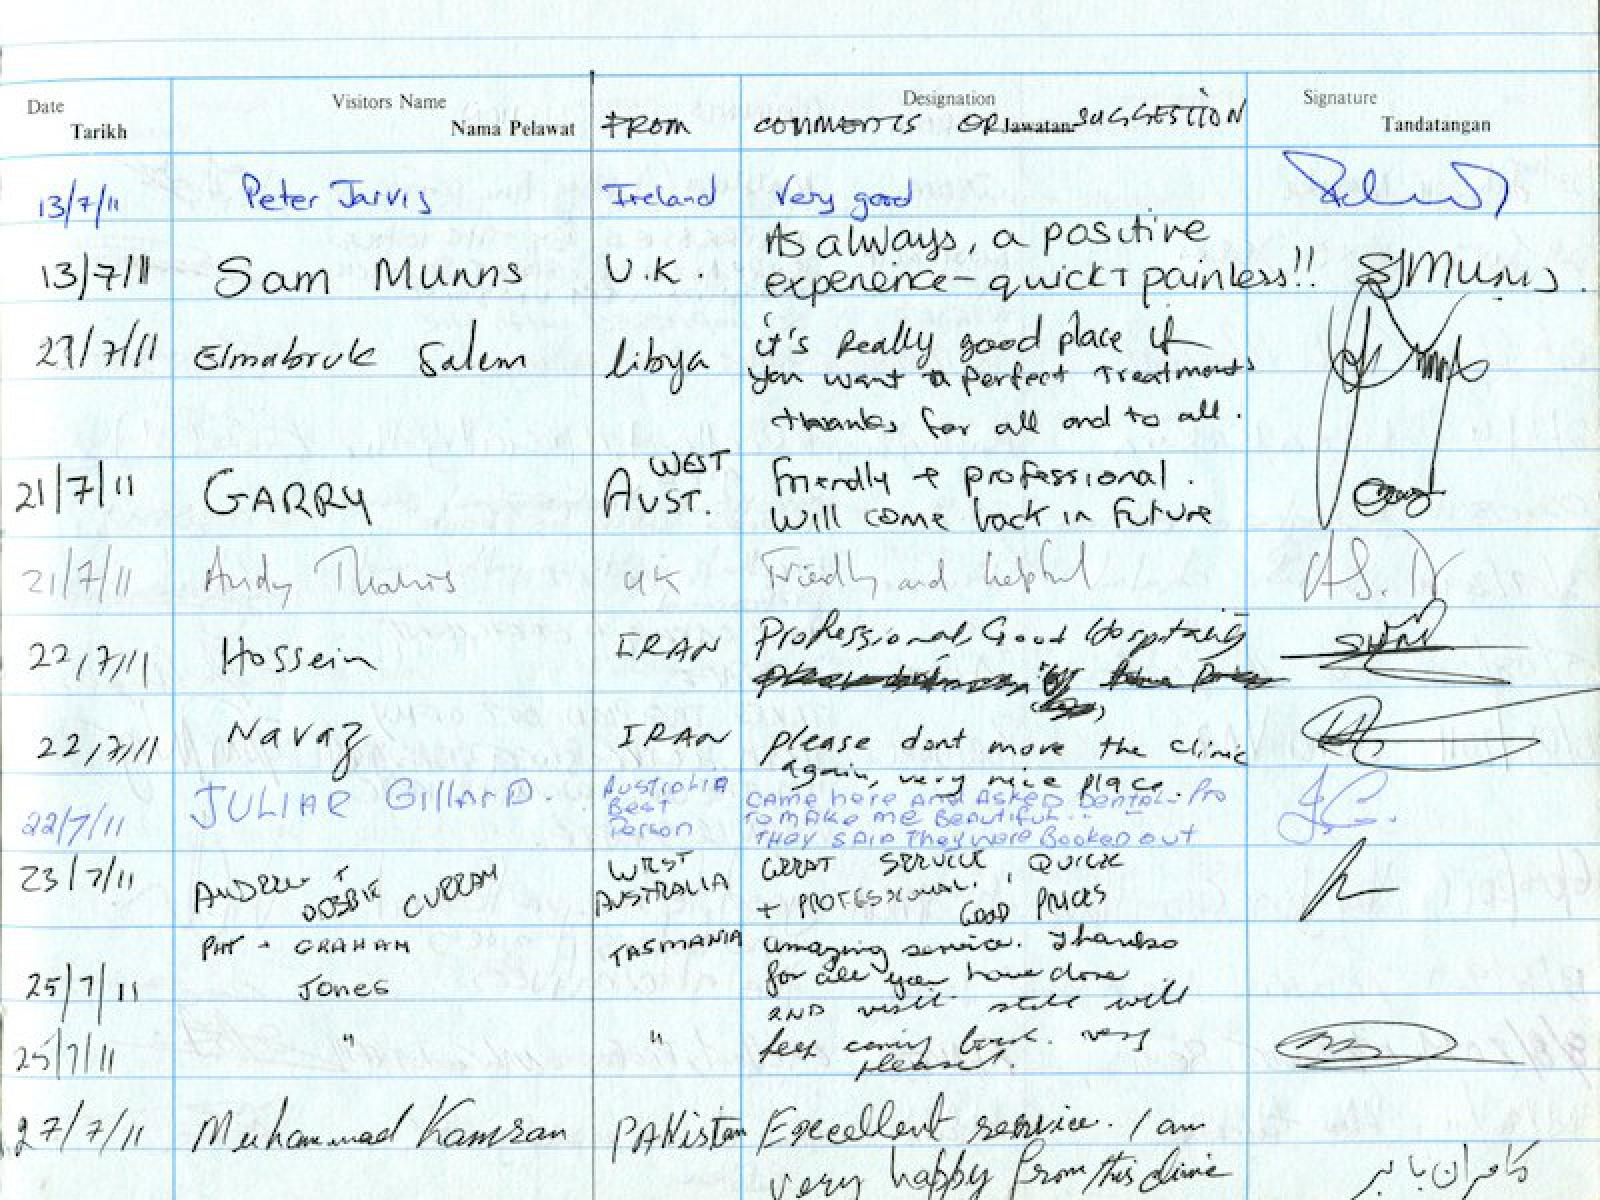 Date Visitors Name Designation Signature
Tarikh Nama Pelawat FROM COMMENTS OR Jawatan SUGGESTION Tandatangan
13/7/11 Peter Jarvis Ireland Very good
13/7/11 Sam Munns U.K. As always, a positive
experience - quick + painless!! SJMunns.
27/7/11 Elmabruk Salem libya it's Really good place if
you want a perfect Treatments
thanks for all and to all.
21/7/11 GARRY WEST
AUST. Friendly + professional.
Will come back in future
21/7/11 Andy UK Friedly and helpful
22/7/11 Hossein IRAN Professional, Good Hospitality
22/7/11 Navaz IRAN please dont move the clinic
again, very nice place.
22/7/11 JULIAR GILLARD. Australia
Best
Person CAME here AND ASKED Dental-Pro
TO MAKE me Beautiful...
THEY SAID They were BOOKED OUT J.G.
23/7/11 ANDREW +
DEBBIE CURRAN WEST
AUSTRALIA GREAT SERVICE, QUICK
+ PROFESSIONAL. GOOD PRICES
25/7/11 PAT - GRAHAM
Jones TASMANIA amazing service. Thanks
for all you have done
AND visit still will
25/7/11 " " keep coming back. very
pleased.
27/7/11 Muhammad Kamran PAKistan Excellent service. I am
very happy from this clinic کامران بابر